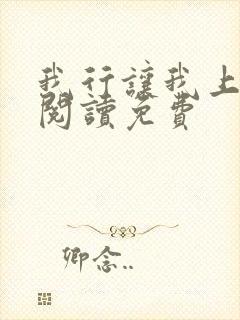 我行讓我上
閱讀免費
卿念..